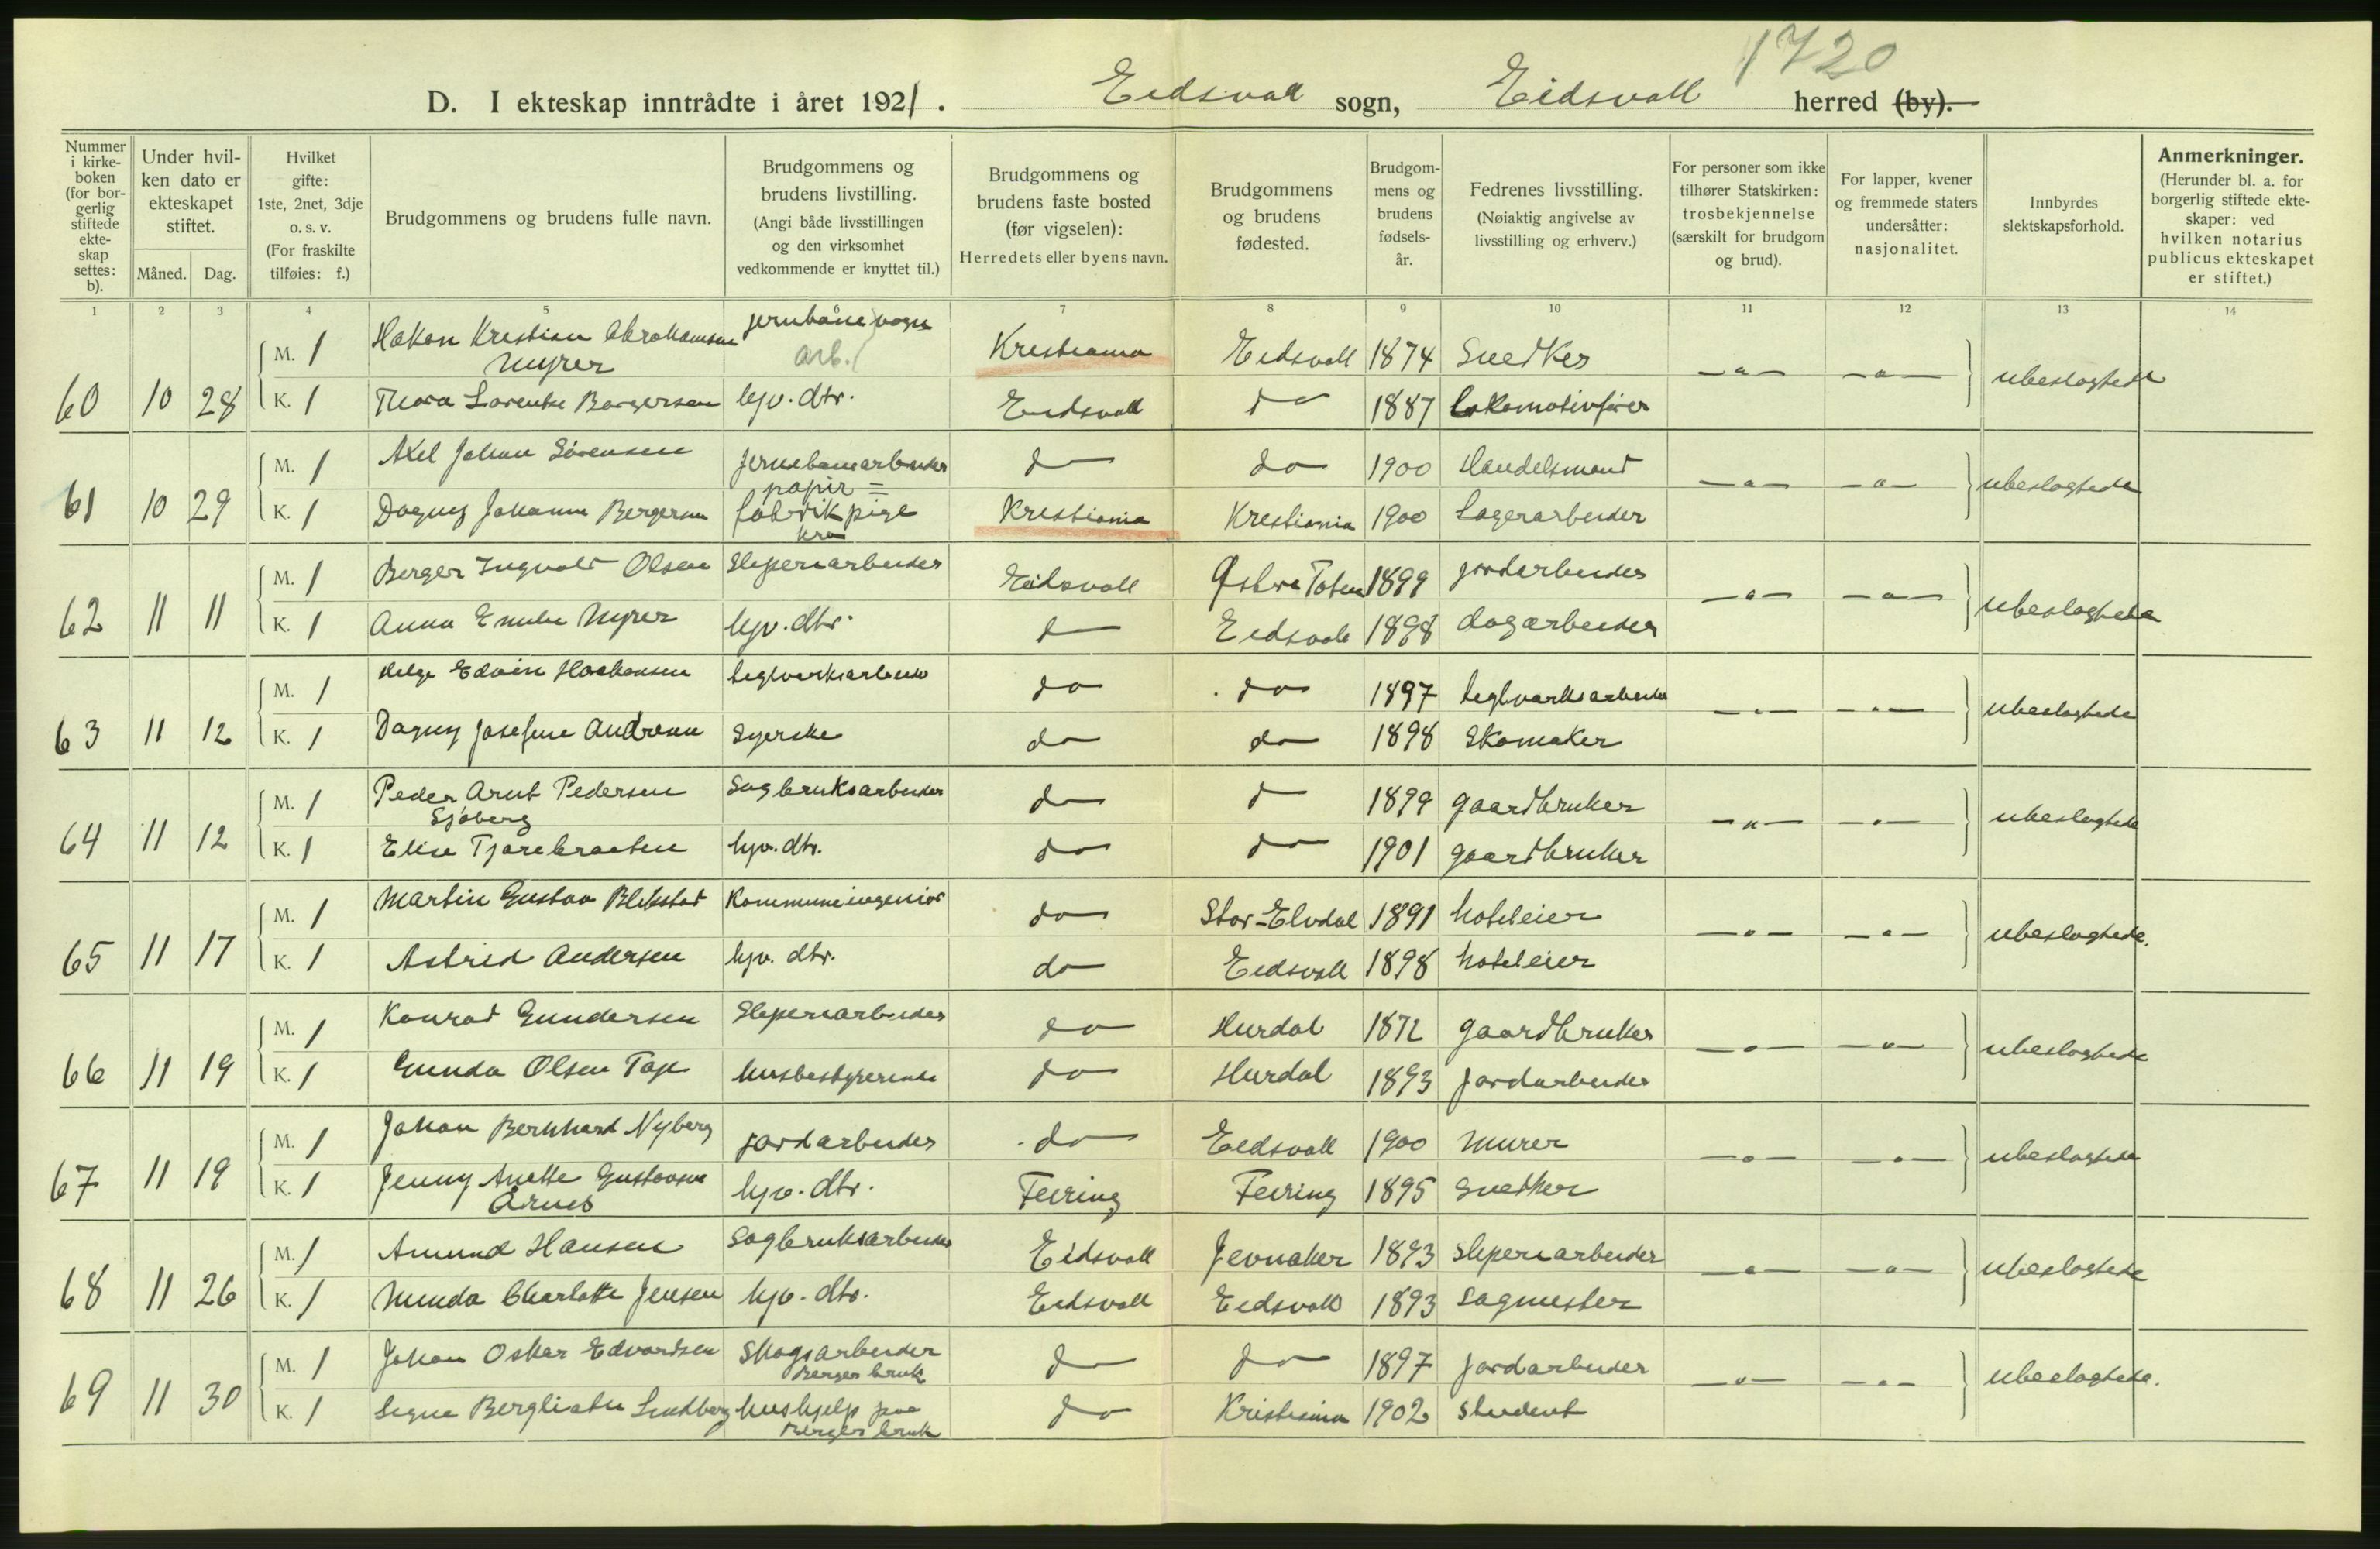 1720
D. I ekteskap inntrådte i året 1921. Eidsvoll sogn, Eidsvoll herred (by).
Nummer i kirkeboken (for borgerlig stiftede ekteskap settes: b).
Under hvilken dato er ekteskapet stiftet.
Måned. Dag.
Hvilket gifte: 1ste, 2net, 3dje o. s. v. (For fraskilte tilføies: f.)
Brudgommens og brudens fulle navn.
Brudgommens og brudens livstilling. (Angi både livsstillingen og den virksomhet vedkommende er knyttet til.)
Brudgommens og brudens faste bosted (før vigselen): Herredets eller byens navn.
Brudgommens og brudens fødested.
Brudgommens og brudens fødselsår.
Fedrenes livsstilling. (Nøiaktig angivelse av livsstilling og erhverv.)
For personer som ikke tilhører Statskirken: trosbekjennelse (særskilt for brudgom og brud).
For lapper, kvener og fremmede staters undersåtter: nasjonalitet.
Innbyrdes slektskapsforhold.
Anmerkninger. (Herunder bl. a. for borgerlig stiftede ekteskaper: ved hvilken notarius publicus ekteskapet er stiftet.)
1 2 3 4 5 7 8 9 10 11 12 13 14
60 10 28 M. 1 Hakon Kristian Abrahamsen Myrer jernbanevogn arb. Kristiania Eidsvoll 1874 Snedker —"— —"— ubeslagtede
K. 1 Thora Lorentse Borgersen hjv. dtr. Eidsvoll do 1887 lokomotivfører
61 10 29 M. 1 Axel Johan Sørensen jernbanearbeider do do 1900 Handelsmand —"— —"— ubeslagtede
K. 1 Dagny Johanne Bergersen papir= fabrikpige Kra Kristiania Kristiania 1900 Lagerarbeider
62 11 11 M. 1 Berger Ingvald Olsen Sliperiarbeider Eidsvoll Østre Toten 1899 jordarbeider —"— —"— ubeslagtede
K. 1 Anna Emilie Myrer hjv. dtr. do Eidsvoll 1898 dagarbeider
63 11 12 M. 1 Helge Edvin Haakonsen teglverksarbeid do do 1897 teglverksarbeider —"— —"— ubeslagtede
K. 1 Dagny Josefine Syerske do do 1898 Skomaker
64 11 12 M. 1 Peder Arnt Pedersen Sjøberg Sagbruksarbeider do do 1899 gaardbruker —"— —"— ubeslagtede
K. 1 Elise Tjærebraaten hjv. dtr. do do 1901 gaardbruker
65 11 17 M. 1 Martin Gustav Blekstad Kommuneingeniør do Stor-Elvdal 1891 hoteleier —"— —"— ubeslagtede.
K. 1 Astrid Andersen hjv. dtr. do Eidsvoll 1898 hoteleier
66 11 19 M. 1 Konrad Gundersen Sliperiarbeider do Hurdal 1872 gaardbruker —"— —"— ubeslagtede
K. 1 Gunda Olsen husbestyrerinde do Hurdal 1893 jordarbeider
67 11 19 M. 1 Johan Bernhard Nyberg jordarbeider do Eidsvoll 1900 murer —"— —"— ubeslagtede
K. 1 Jenny Anette Gustavsen Årnes hjv. dtr. Feiring Feiring 1895 Snedker
68 11 26 M. 1 Amund Hansen Sagbruksarbeider Eidsvoll Jevnaker 1893 Sliperiarbeider —"— —"— ubeslagtede
K. 1 Charlotte Jensen hjv. dtr. Eidsvoll Eidsvoll 1893 Sagmester
69 11 30 M. 1 Johan Oskar Edvardsen Skogsarbeider Berger bruk do do 1897 jordarbeider —"— —"— ubeslagtede.
K. 1 Signe Lindberg hushjelp paa Berger bruk do Kristiania 1902 student